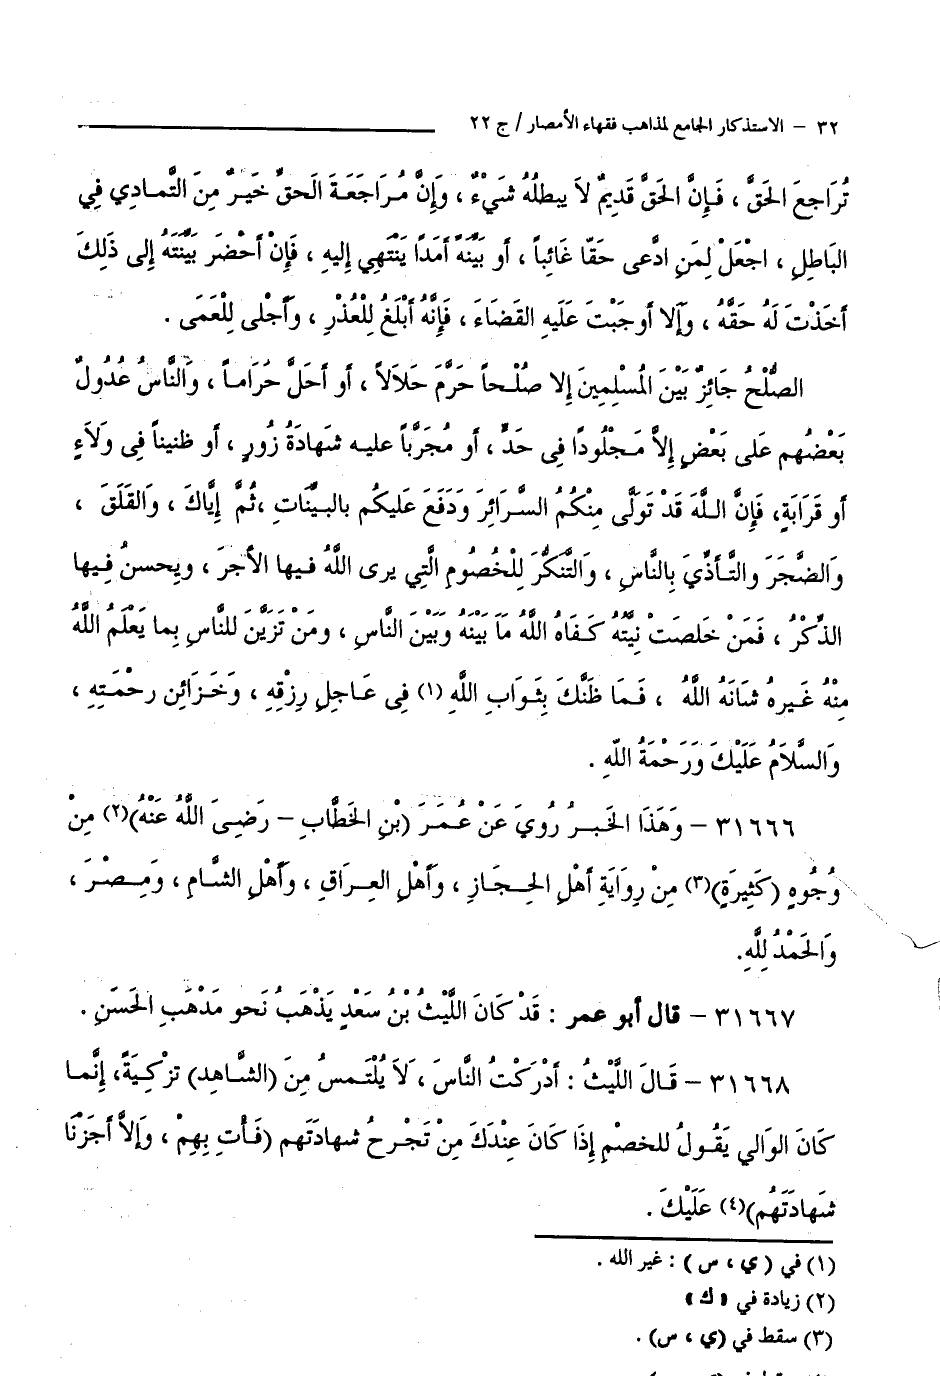 ٣٢ – الاستذكار الجامع لمذاهب فقهاء الأمصار / ج ٢٢
تُرَاجعَ الحَقَّ ، فَإِنَّ الحَقَّ قَدِيمٌ لاَ يبطلُهُ شَيْءٌ ، وَإِنَّ مُرَاجَعَةَ الحقِّ خَيرٌ مِنَ التَّمادِي فِي
البَاطِلِ ، اجْعَلْ لِمَنِ ادَّعى حَقّا غَائِباً ، أو بَيِّنَةً أمَدًا يَنْتَهِي إِليهِ ، فَإِنْ أحْضَر بَيِّنَتَهُ إِلى ذَلِكَ
أخَذْتَ لَهُ حَقَّهُ ، وَإِلا أوجَبْتَ عَلَيهِ القَضَاءَ ، فَإِنَّهُ أبْلَغُ لِلْعُذْرِ ، وَأَجْلى لِلْعَمَى .
الصُّلْحُ جَائِزٌ بَيْنَ المُسْلِمِينَ إِلا صُلْحاً حَرَّمَ حَلاَلاً ، أو أحَلَّ حَرَاماً ، وَالنَّاسُ عُدُولٌ
بَعْضُهم عَلى بَعْضٍ إِلاَّ مَجْلُودًا فِى حَدٍّ ، أو مُجَرَّباً عليه شَهادَةُ زُورٍ ، أو ظنيناً فِى وَلاَءٍ
أو قَرَابَةٍ، فَإِنَّ اللَّهَ قَدْ تَوَلَّى مِنْكُمُ السَّرائِرَ وَدَفَعَ عَليكُم بالبيِّنَاتِ ،ثُمَّ إِيَّاكَ ، وَالقَلَقَ ،
وَالضَّجَرَ والتَّأذِّيَ بِالنَّاسِ ، وَالتَّنَكُّرَ لِلْخُصُومِ الَّتِي يرى اللَّهُ فيها الأجرَ ، ويحسنُ فِيها
الذِّكْرُ ، فَمَنْ خَلصَتْ نِيَّتُهُ كَفَاهُ اللَّهُ مَا بَيْنَهُ وَبَيْنَ النَّاسِ ، ومَنْ تَزَيَّنَ للنَّاسِ بِما يَعْلَمُ اللَّهُ
مِنْهُ غَيرهُ شَانَهُ اللَّهُ ، فَمَا ظَنُّكَ بِثَوَابِ اللَّهِ (١) فِى عَاجِلِ رِزْقِهِ ، وَخَزَائِنِ رحْمَتِهِ ،
وَالسَّلاَمُ عَلَيْكَ وَرَحْمَةُ اللَّهِ .
٣١٦٦٦ – وَهَذَا الخَبرُ رُويَ عَنْ عُمَرَ (بْنِ الخَطَّابِ – رَضِيَ اللَّهُ عَنْهُ)(٢) مِنْ
وُجُوهٍ (كَثِيرَةٍ)(٣) مِنْ رِوَايَةِ أهْلِ الحِجَازِ ، وَأهْلِ العِراقِ ، وَأهْلِ الشَّامِ ، وَمِصْرَ ،
وَالحَمْدُ لِلَّهِ.
٣١٦٦٧ – قال أبو عمر : قَدْ كَانَ اللَّيْثُ بْنُ سَعْدٍ يَذْهَبُ نَحو مَذْهَبِ الحَسَنِ .
٣١٦٦٨ – قَالَ اللَّيْثُ : أدْرَكْتُ النَّاسَ ، لاَ يُلْتَمسُ مِنَ (الشَّاهِدِ) تزْكِيَةً، إِنَّما
كَانَ الوَالي يَقُولُ للخصْمِ إِذَا كَانَ عِنْدَكَ مِنْ تَجْرحُ شهادَتَهم (فَأْتِ بِهِمْ ، وَإِلاَّ أجَزْنَا
شَهادَتَهُم)(٤) عَلَيْكَ .
(١) في ( ي ، س ) : غير الله .
(٢) زيادة في « ك »
(٣) سقط في (ي ، س) .